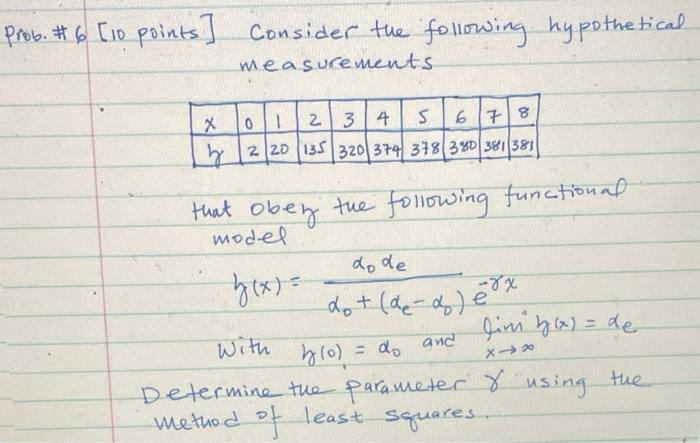 Prob. # 6 [10 points] Consider the following hypothetical
measurements
x 0 1 2 3 4 5 6 7 8
y 2 20 135 320 374 378 380 381 381
that obey the following functional
model
y(x) = α₀ αₑ / α₀ + (αₑ - α₀) e^-γx
With y(0) = α₀ and lim y(x) = αₑ
x → ∞
Determine the parameter γ using the
method of least squares.